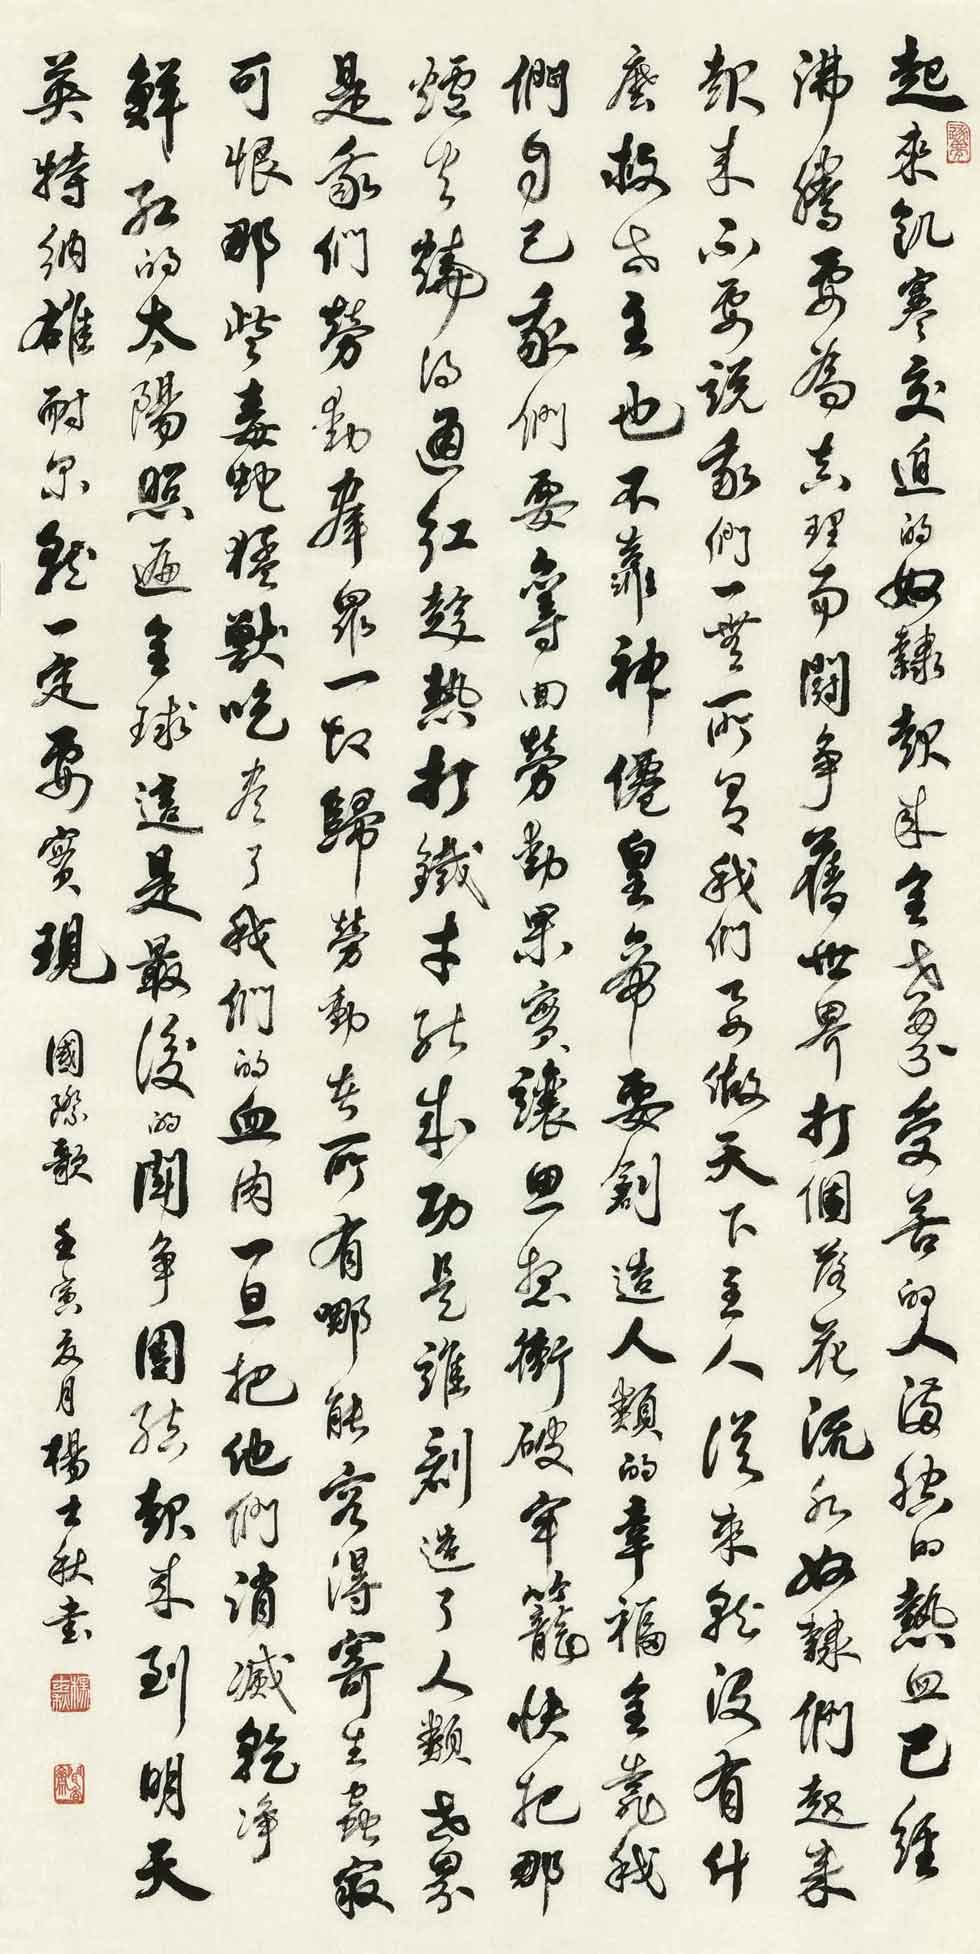 起來飢寒交迫的奴隸起來全世界受苦的人滿腔的熱血已經
沸騰要為真理而鬭爭舊世界打個落花流水奴隸們起來
起來不要說我們一無所有我們要做天下主人從來就沒有什
麼救世主也不靠神僊皇帝要創造人類的幸福全靠我
們自己我們要奪回勞動果實讓思想衝破牢籠快把那
爐火燒得通紅趁熱打鐵才能成功是誰創造了人類世界
是我們勞動羣眾一切歸勞動者所有哪能容得寄生蟲寂
可恨那些毒蛇猛獸吃盡了我們的血肉一旦把他們消滅乾淨
鮮紅的太陽照遍全球這是最後的鬭爭團結起來到明天
英特納雄耐尔就一定要實現
國際歌 壬寅夏月楊士秋書